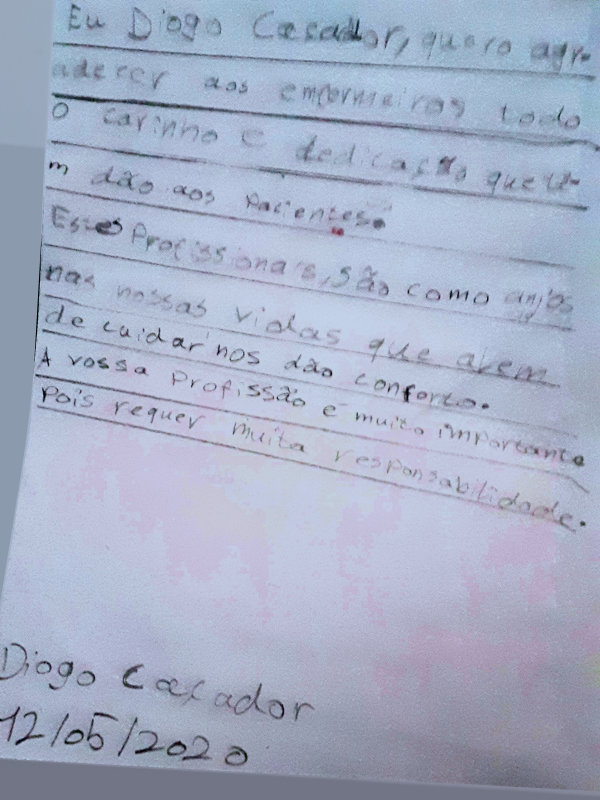 Eu Diogo Casador, quero agr-
adecer aos enfermeiros todo
o carinho e dedicação que te-
m dão aos Pacientes.
Estes Profissionais, são como anjos
nas nossas vidas que alem
de cuidar nos dão conforto.
A vossa Profissão é muito importante
Pois requer muita responsabilidade.
Diogo Casador
12/05/2020